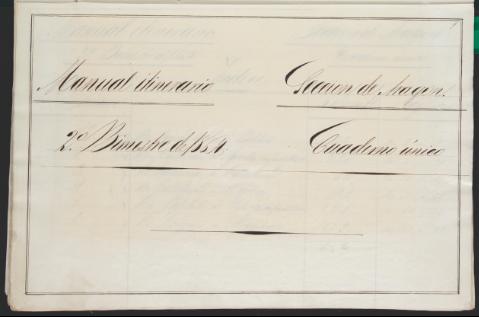 Manual itinerario
Seccion de Magen.
2º Bimestre de 1864.
Cuaderno único